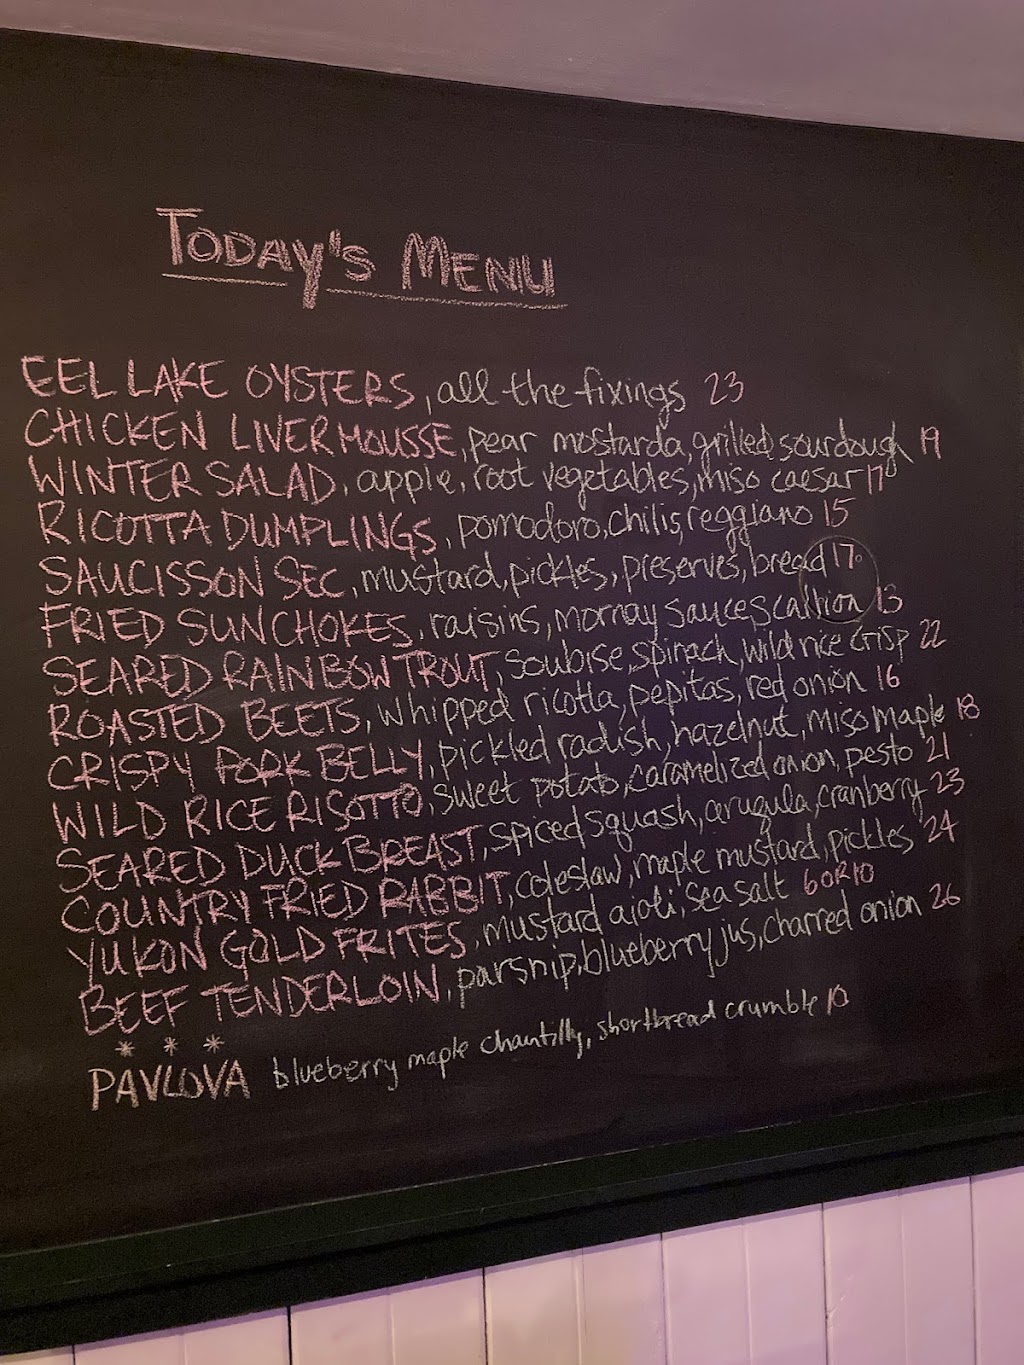 TODAY'S MENU
EEL LAKE OYSTERS, all the fixings 23
CHICKEN LIVER MOUSSE, pear mostarda, grilled sourdough 19
WINTER SALAD, apple, root vegetables, miso caesar 17
RICOTTA DUMPLINGS, pomodoro, chilis, reggiano 15
SAUCISSON SEC, mustard, pickles, preserves, bread 17
FRIED SUNCHOKES, raisins, mornay sauce, scallion 13
SEARED RAINBOW TROUT, soubise, spinach, wild rice crisp 22
ROASTED BEETS, whipped ricotta, pepitas, red onion 16
CRISPY PORK BELLY, pickled radish, hazelnut, miso maple 18
WILD RICE RISOTTO, sweet potato, caramelized onion, pesto 21
SEARED DUCK BREAST, spiced squash, arugula, cranberry 23
COUNTRY FRIED RABBIT, coleslaw, maple mustard, pickles 24
YUKON GOLD FRITES, mustard aioli, sea salt 6 OR 10
BEEF TENDERLOIN, parsnip, blueberry jus, charred onion 26
* * *
PAVLOVA blueberry maple chantilly, shortbread crumble 10